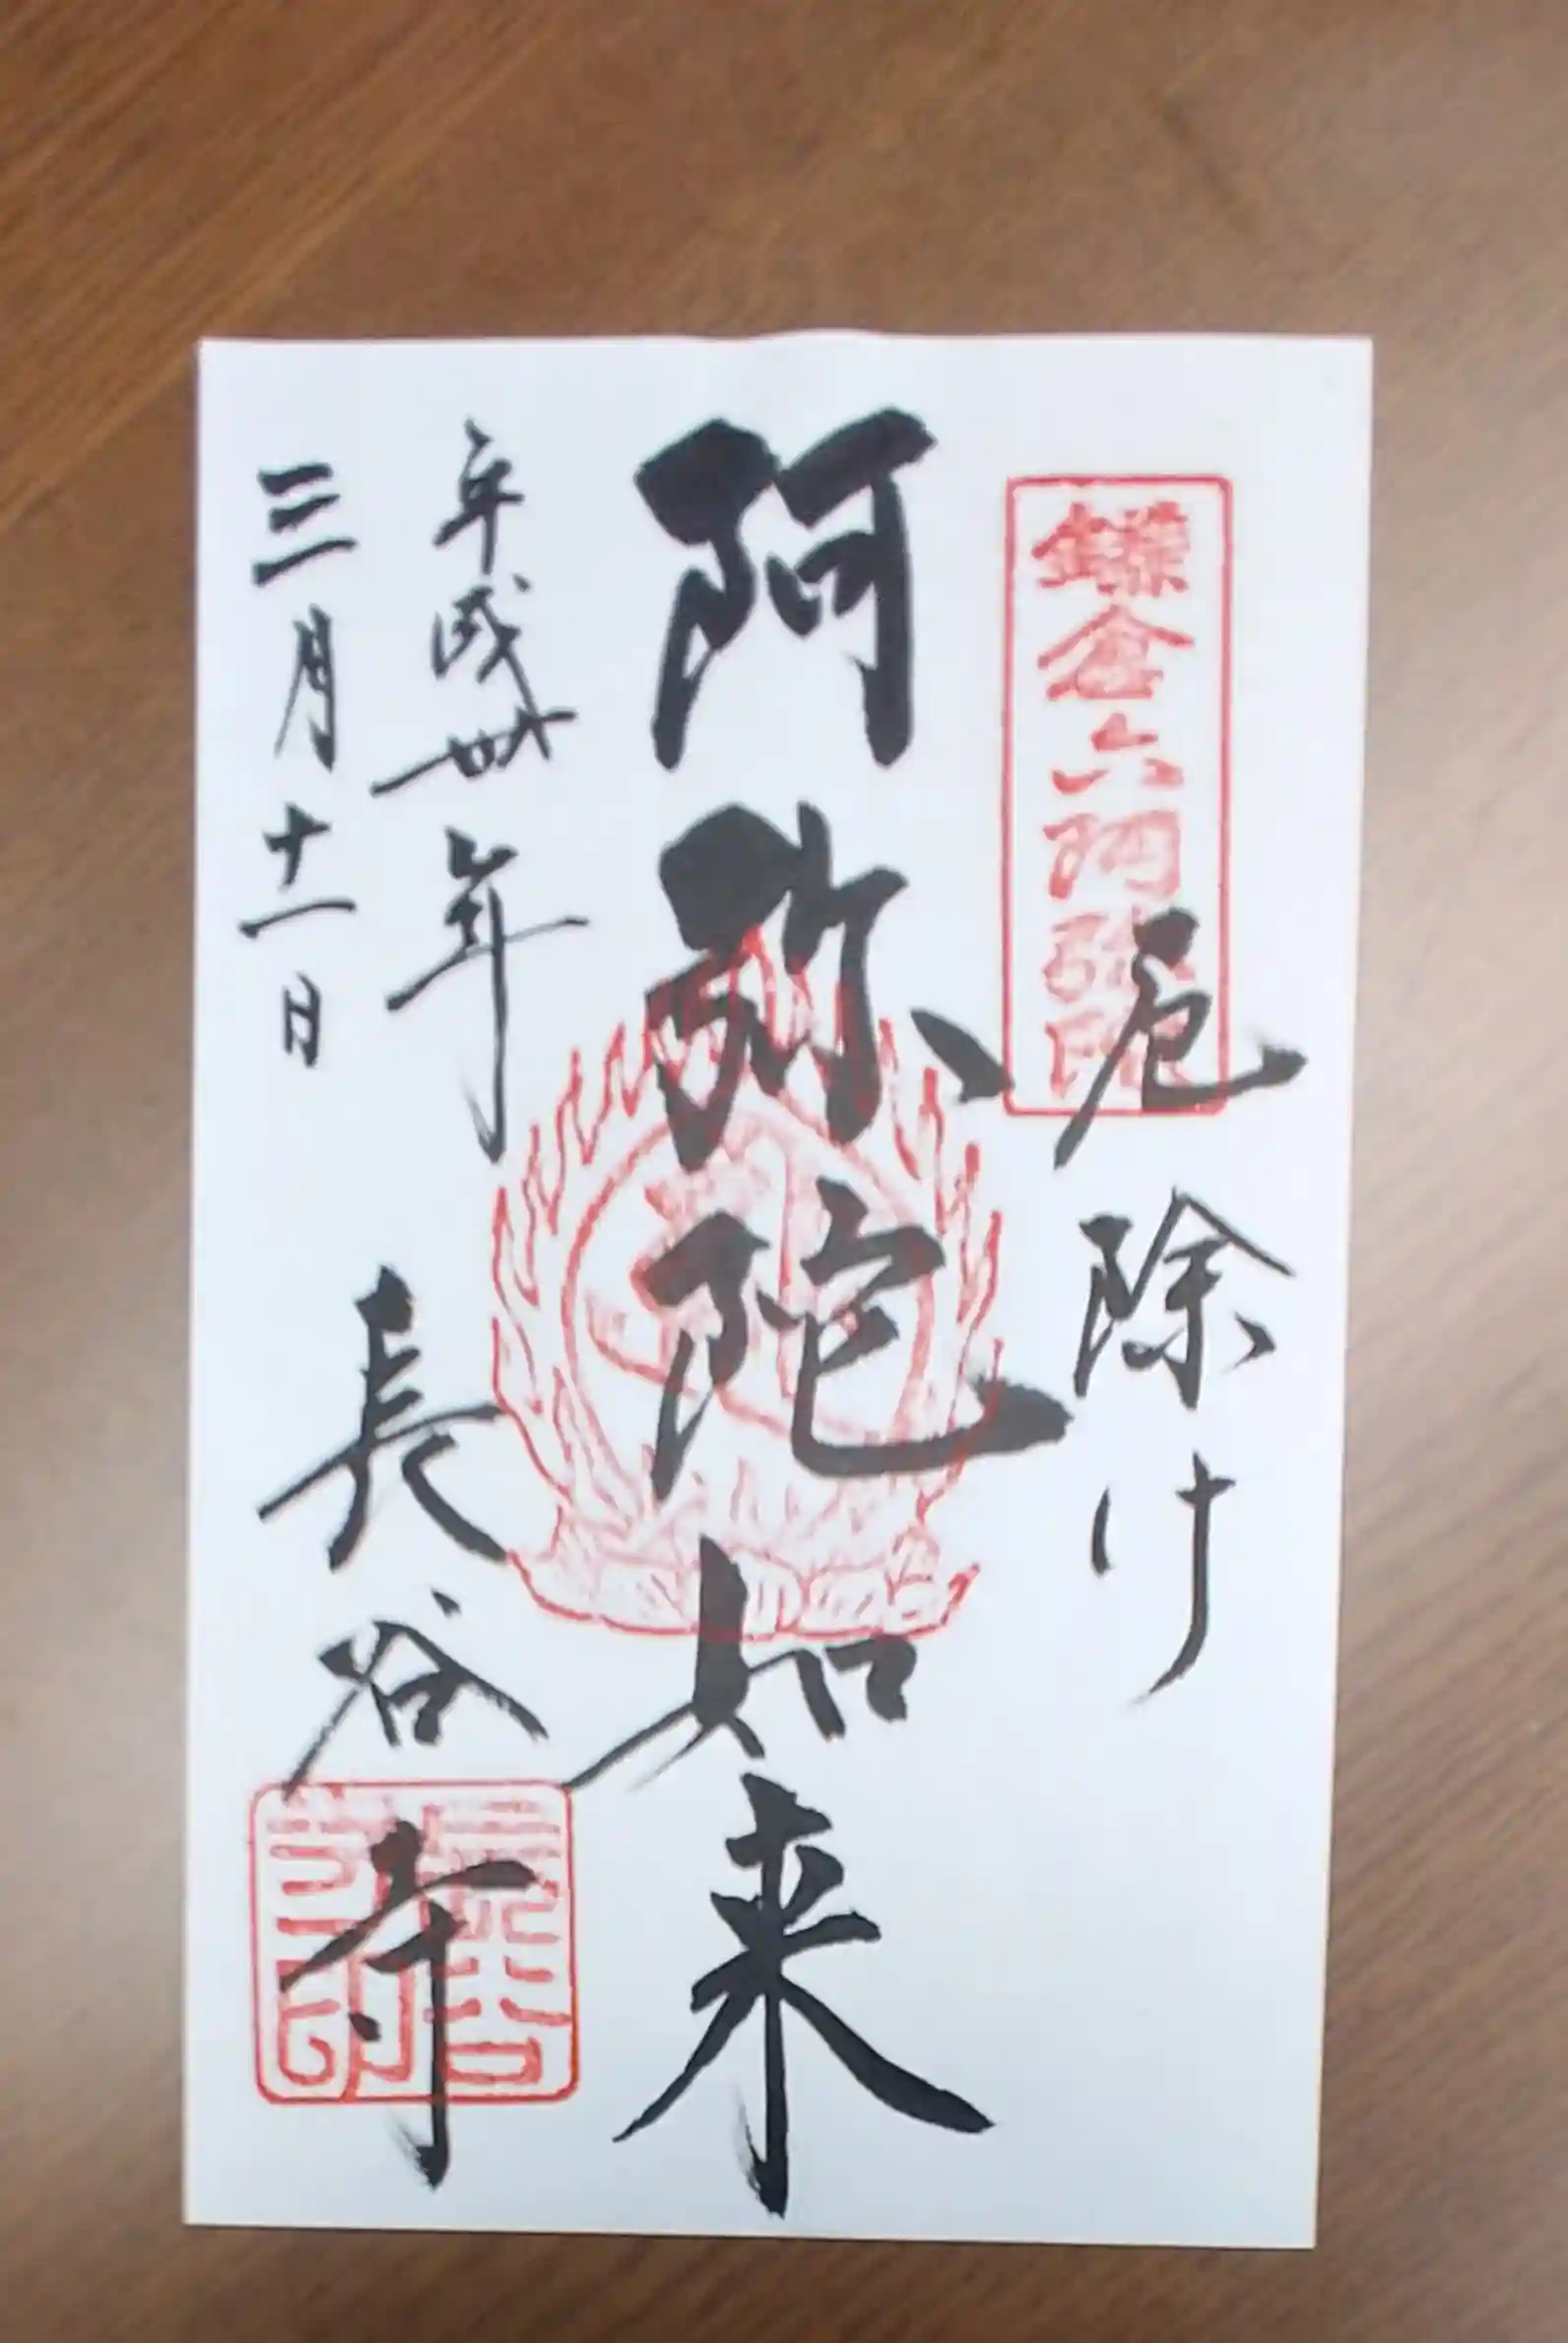 鎌倉六阿弥陀
厄除け
阿弥陀如来
平成卅年
三月十一日
長谷寺